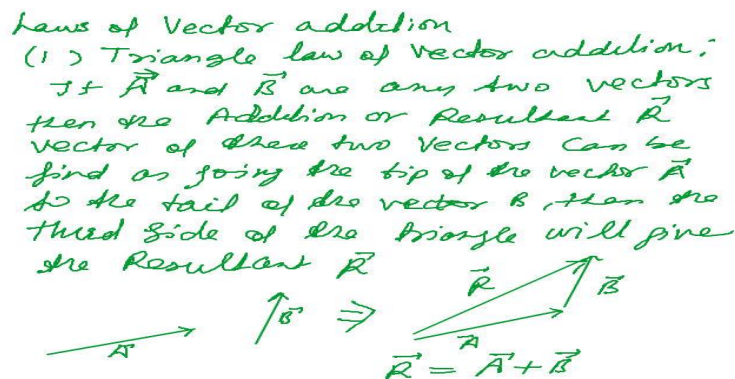 Laws of Vector addition
(1) Triangle law of vector addition:
If A⃗ and B⃗ are any two vectors
then the Addition or Resultant R⃗
vector of these two vectors can be
find as joing the tip of the vector A⃗
to the tail of the vector B, then the
third side of the triangle will give
the Resultant R⃗
A⃗ B⃗ ⇒ R⃗ A⃗ B⃗
R⃗ = A⃗ + B⃗